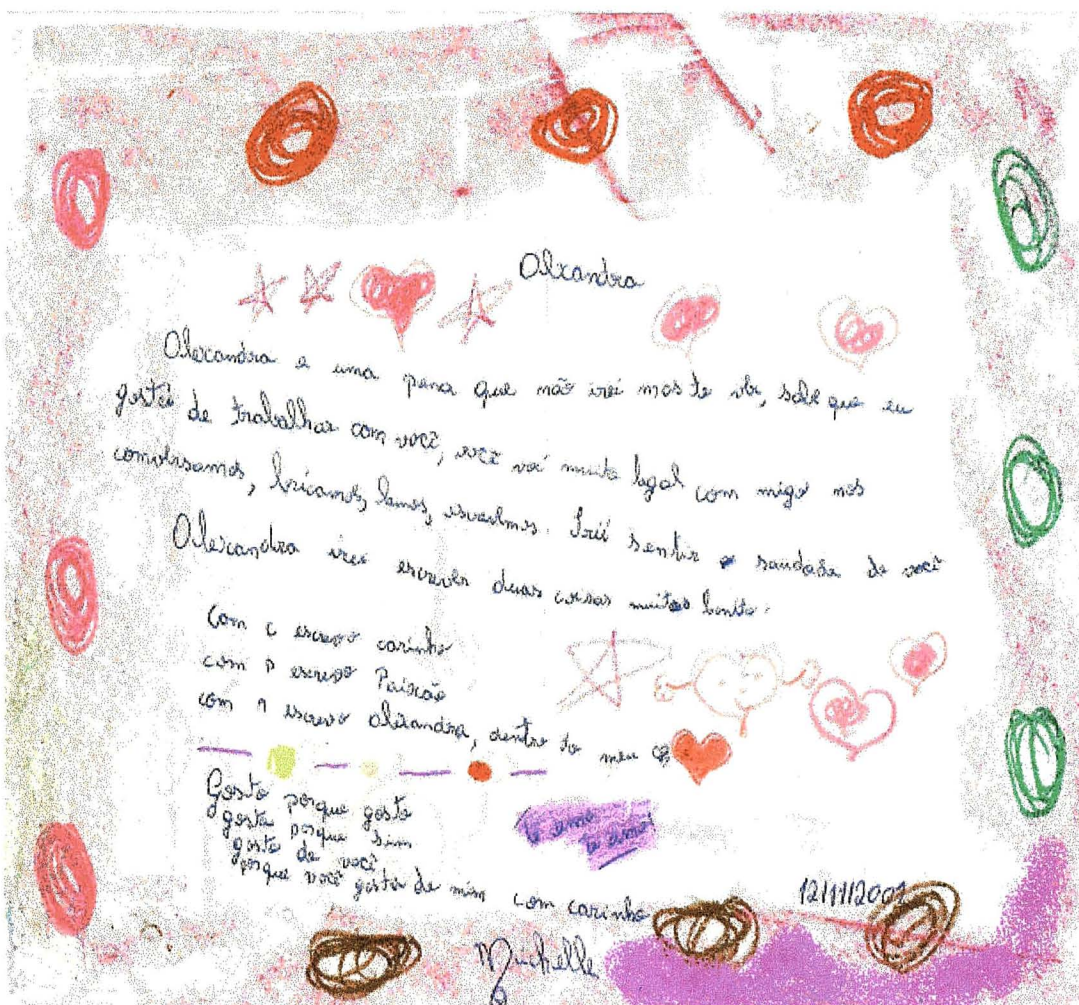 Alexandra
Alexandra e uma pena que não irei mas te ver, sabe que eu
gostei de trabalhar com você, você voi muito legal com migo nos
comversamos, bricamos, lemos, escrevemos. Irei sentir saudade de você
Alexandra irei escrever duas coisas muitas bonito.
Com c escrevo carinho
com p escrevo Paixão
com A escrevo Alexandra, dentro do meu
Gosto porque gosto
gosto porque sim
gosto de você
porque você gosta de mim com carinho
te amo
te amo!
12/11/2001
Michelle